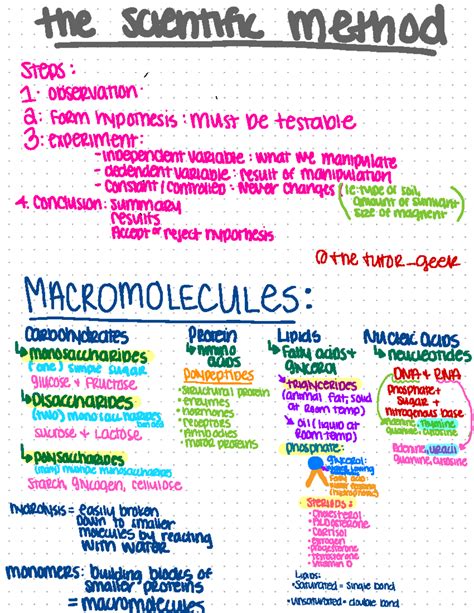 the scientific method
Steps:
1. observation
2. form hypothesis: must be testable
3. experiment:
- independent variable: what we manipulate
- dependent variable: result of manipulation
- Constant/controlled: never changes (ie: type of soil,
amount of sunlight
size of magnent)
4. Conclusion: summary
results
Accept or reject hypothesis
@the tutor_geek
MACROMOLECULES:
Carbohydrates
↳ monosaccharides
(one) simple sugar
glucose & Fructose
↳ Disaccharides
(two) monosaccharides
sucrose & Lactose
↳ polysaccharides
(many) multiple monosaccharides
Starch, glycogen, cellulose
Protein
↳ Amino
acids
Polypeptides
• Structural protein
• enzymes
• hormones
• receptors
• Antibodies
• motor proteins
Lipids
↳ Fatty acids +
glycerol
↳ triglycerides
(animal fat; solid
at room temp)
↳ oil (liquid at
room temp)
phosphate:
glycerol:
Fatty acid:
(hydrophobic)
Steroids:
• Cholesterol
• Aldosterone
• Cortisol
• estrogen
• progesterone
• testosterone
• vitamin D
Nucleic acids
↳ nucleotides
DNA & RNA
Phosphate +
Sugar +
nitrogenous base
Adenine, thymine
guanine, cytosine
Adenine, uracil
guanine, cytosine
hydrolysis = easily broken
down to smaller
molecules by reacting
with water
monomers: building blocks of
smaller proteins
= macromolecules
Lipids:
• Saturated = single bond
• unsaturated = double bond